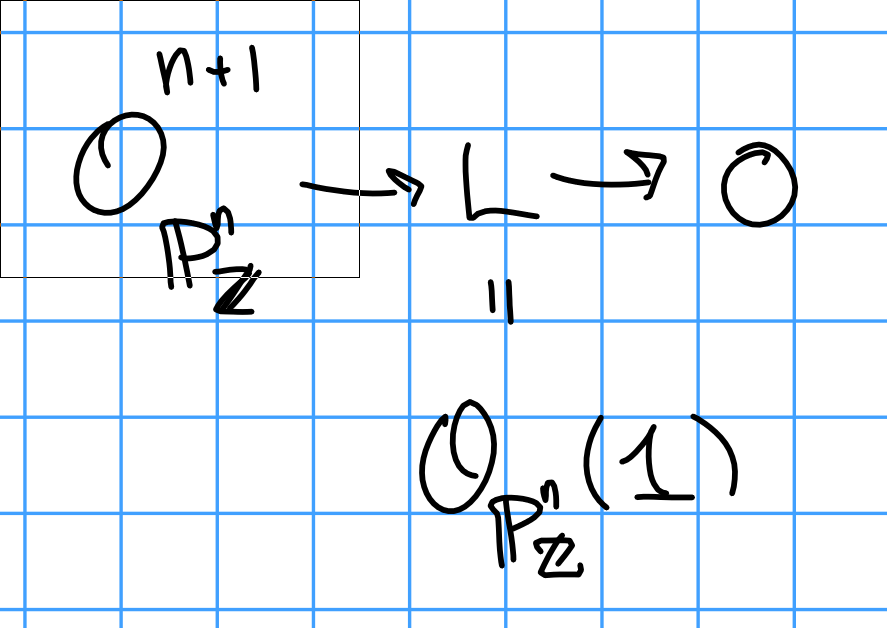 𝒪_{ℙ^n_ℤ}^{n+1} → L → 0
||
𝒪_{ℙ^n_ℤ}(1)